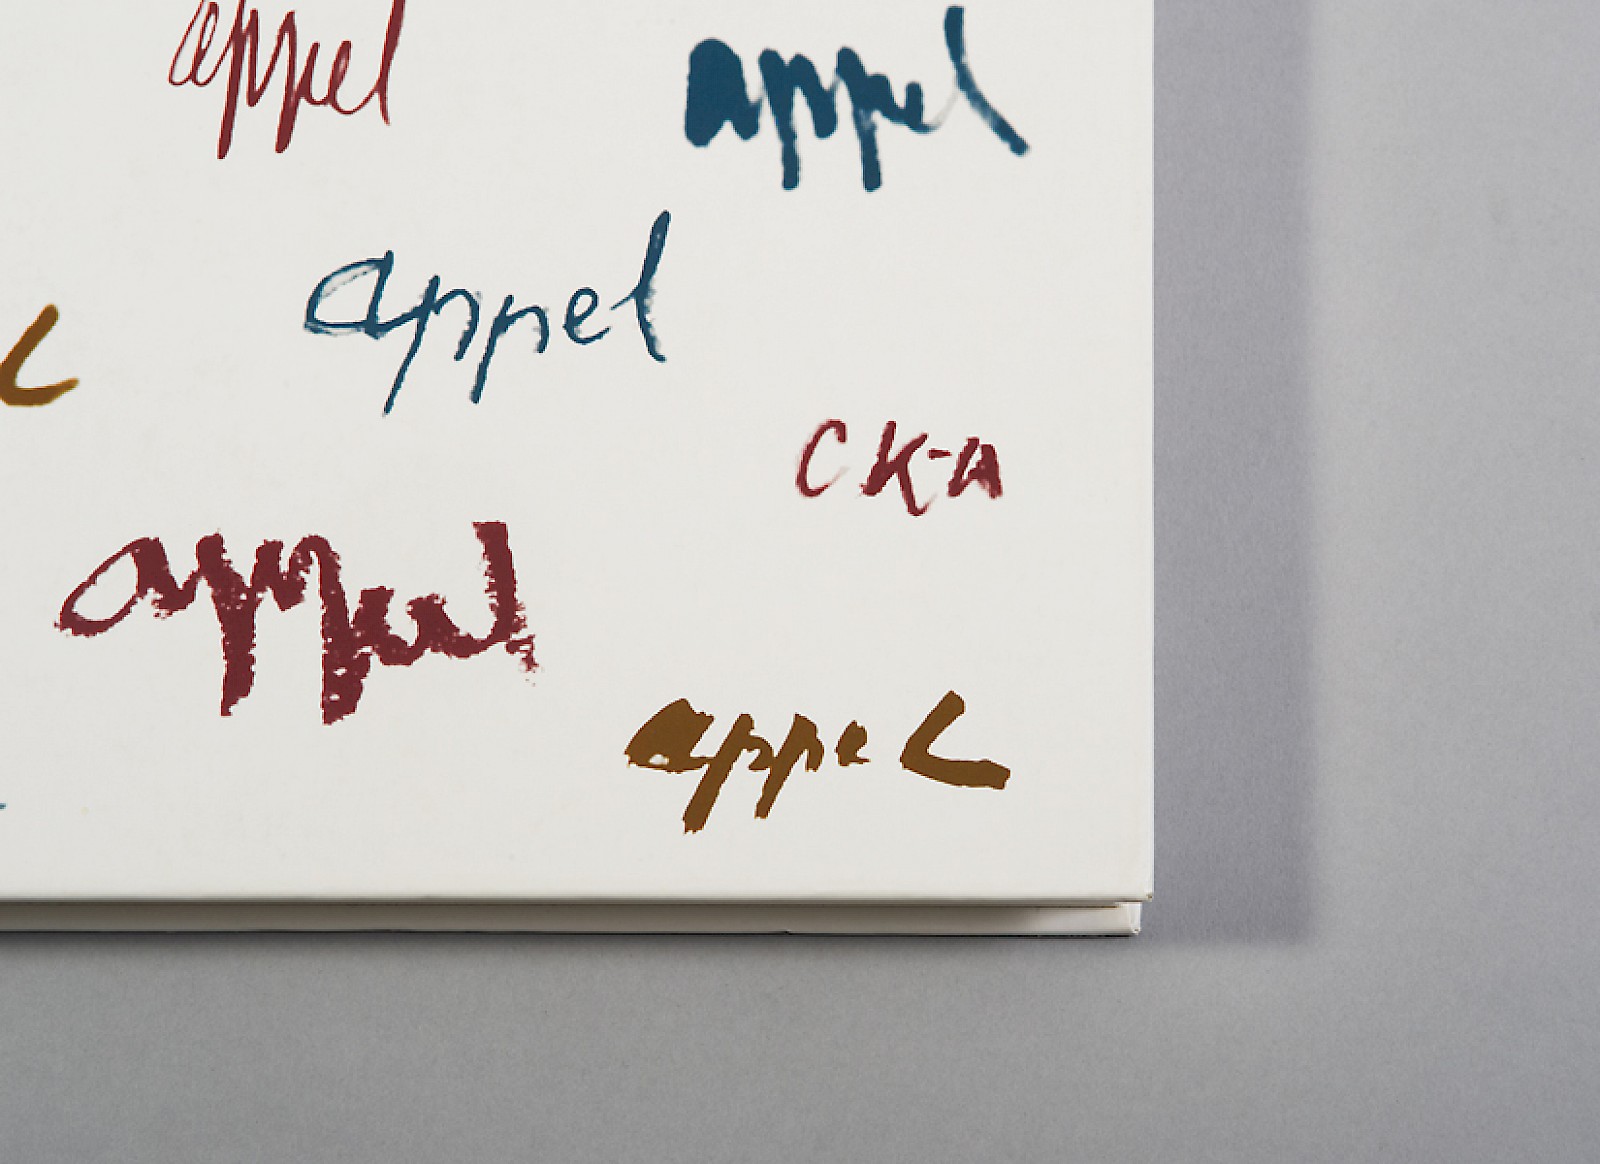 appel
appel
appel
CK-A
appel
appel